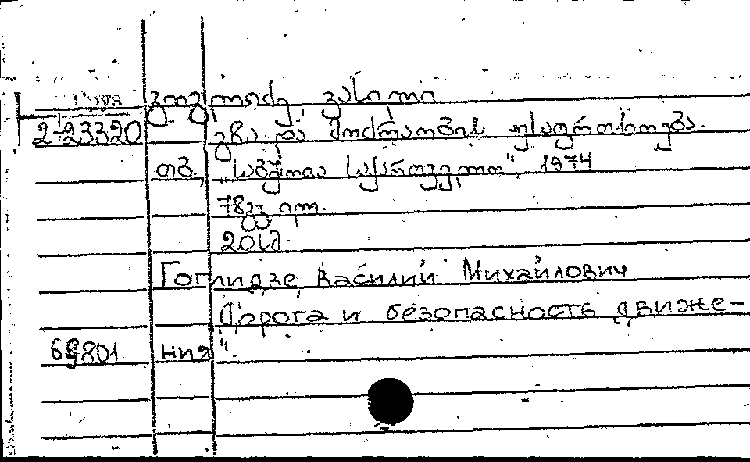 გოგლიძე ვასილი
2-23320 გზა და მოძრაობის უსაფრთხოება.
თბ, „საბჭოთა საქართველო", 1974
78გვ.
Гоглидзе Василий Михайлович
Дорога и безопасность движе-
69801 ния".